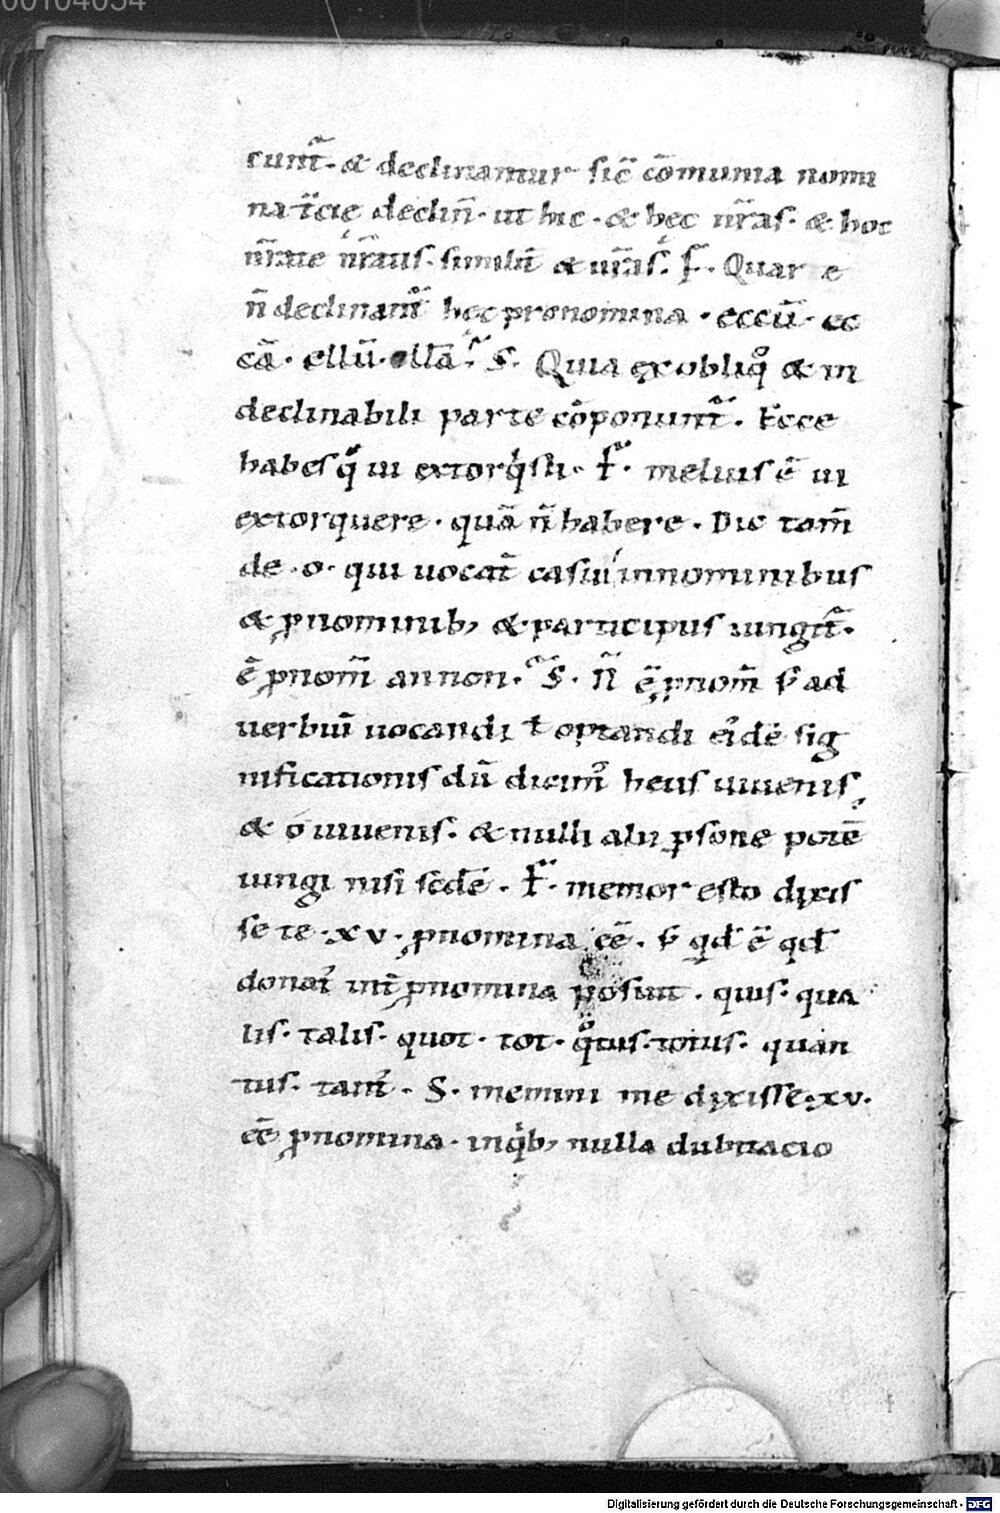 00104054
cunt̃. & declinantur sic̃ cōmunia nomi
na t̃cie declin̄. ut hic. & hec nr̃as. & hoc
nr̃ate nr̃atis. similit̃ & ur̃as. F. Quare
n̄ declinant̃ hec pronomina. eccū. ec
cā. ellū. ellā. S. Quia ex obliqͦ & in
declinabili parte cōponunt̃. Ecce
habes qͥ ui extorqͥsti. F. melius ē ui
extorquere. quā n̄ habere. Dic tam̄
de .o. qui uocat̃ casui in nominibus
& ꝓnominib; & participiis iungit̃.
ē ꝓnom̄ an non. S. N̄ ē ꝓnom̄ s; ad
uerbiū uocandi ł optandi eidē sig
nificationis dū dicimꝰ heus iuuenis,
& o iuuenis. & nulli alii ꝑsone potē
iungi nisi scd̄e. F. memor esto dixis
se te .xv. ꝓnomina eē. s; qd̄ ē qd̄
donat᷒ int̃ ꝓnomina posuit. quis. qua
lis. talis. quot. tot. qͦtus. totus. quan
tus. tant᷒. S. memini me dixisse .xv.
eē ꝓnomina. in qͥb; nulla dubitacio
Digitalisierung gefördert durch die Deutsche Forschungsgemeinschaft - DFG